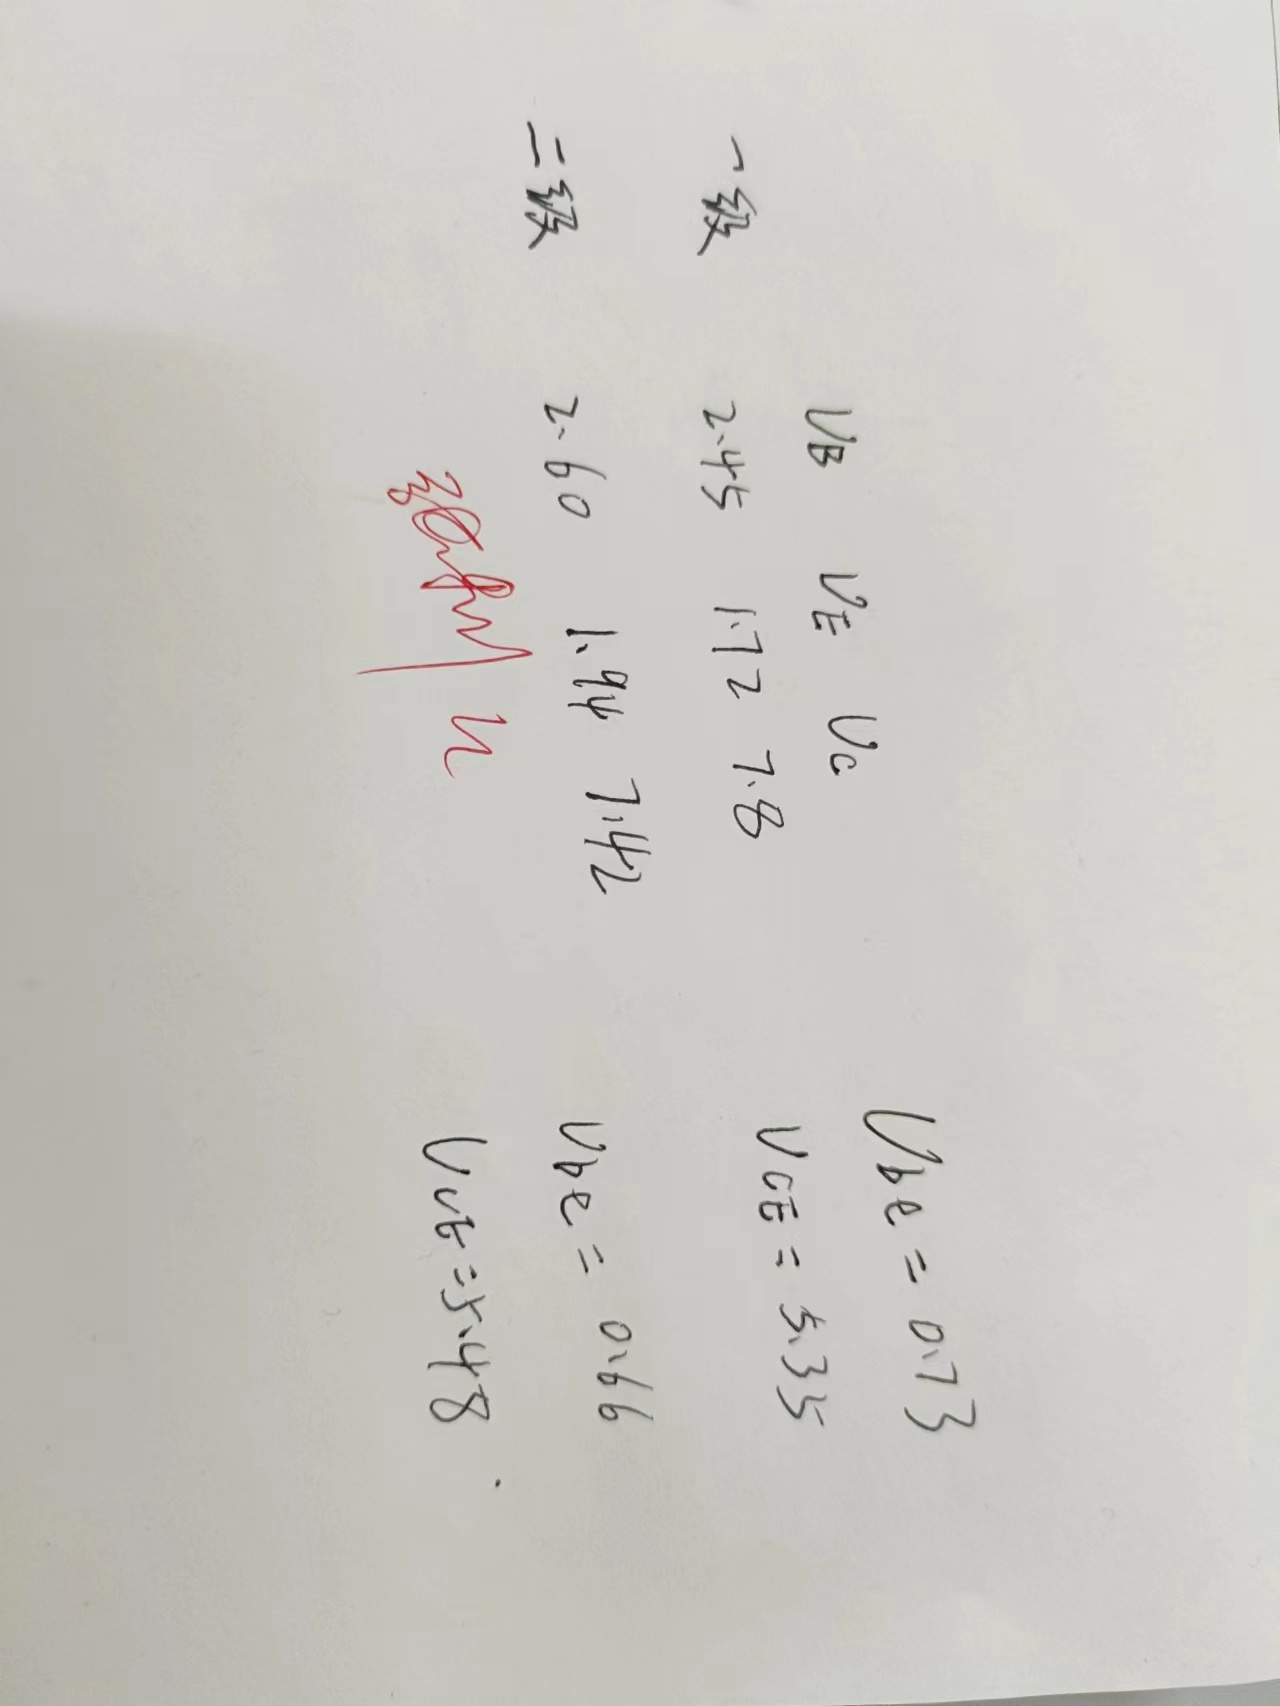 VB VE VC
一级 2.45 1.72 7.8
二级 2.60 1.94 7.42
Vbe = 0.73
VCE = 5.35
Vbe = 0.66
VCE = 5.48